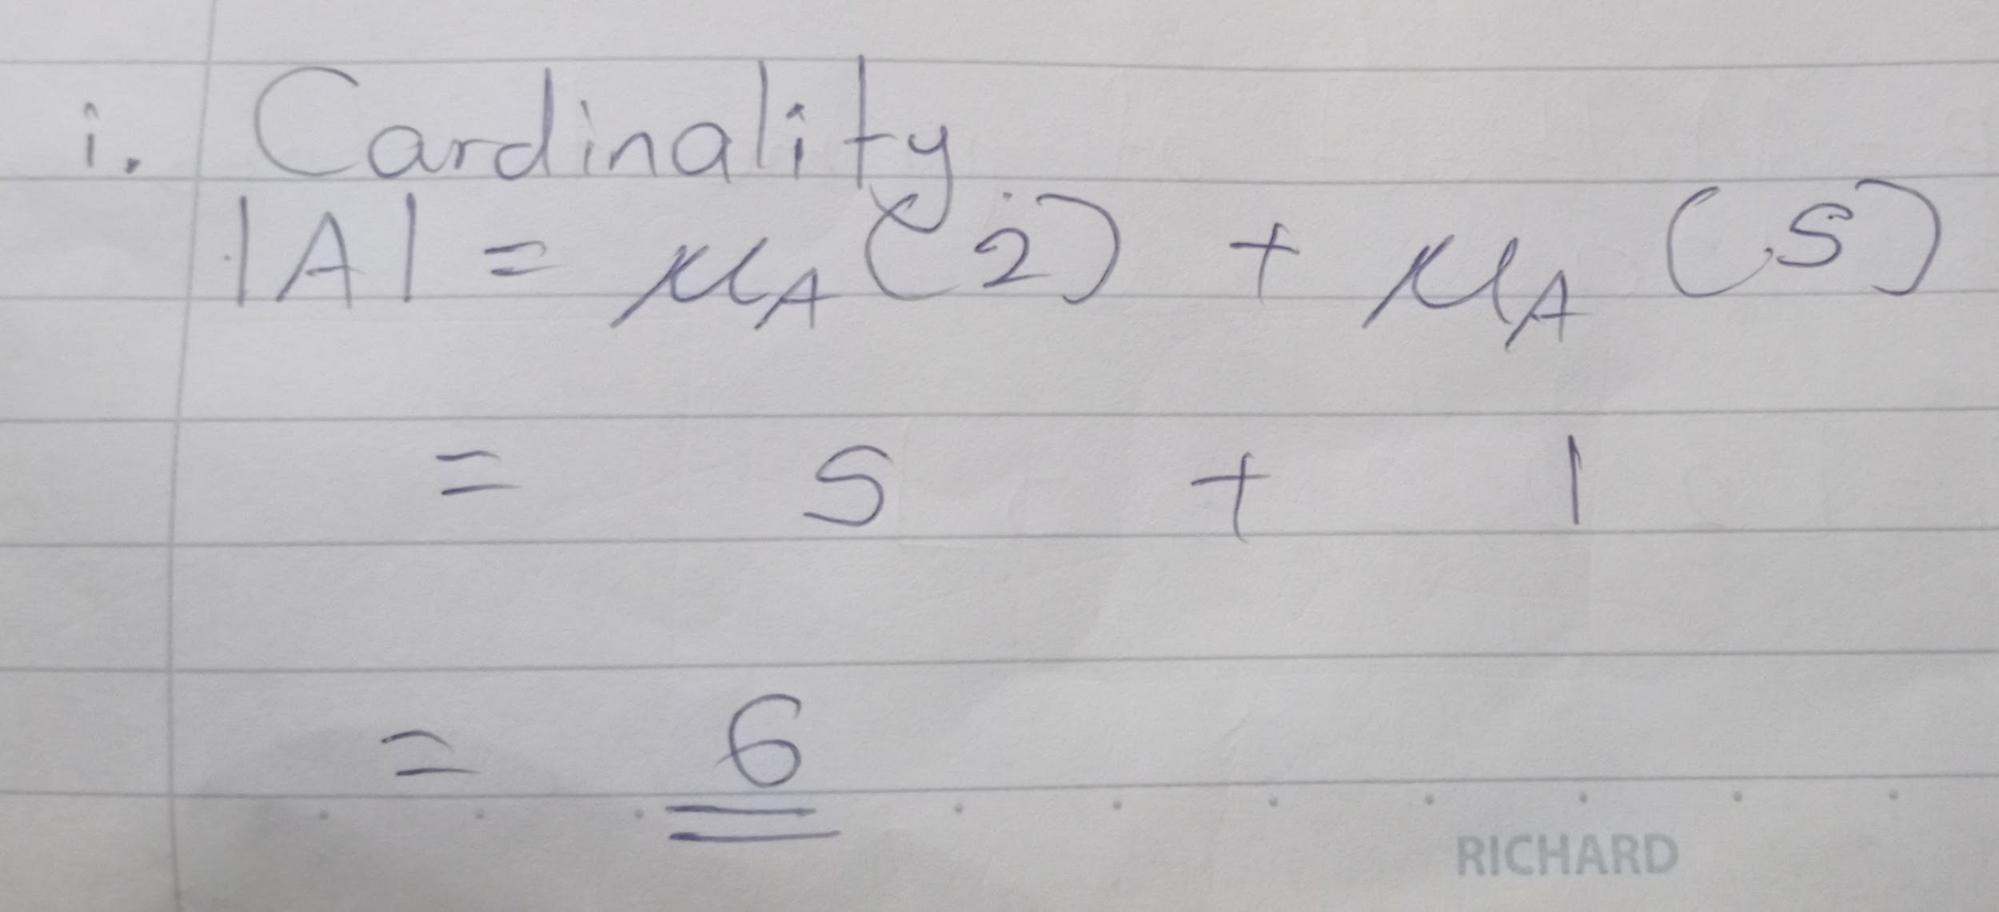 i. Cardinality
|A| = μ_A (2) + μ_A (5)
= 5 + 1
= 6
RICHARD